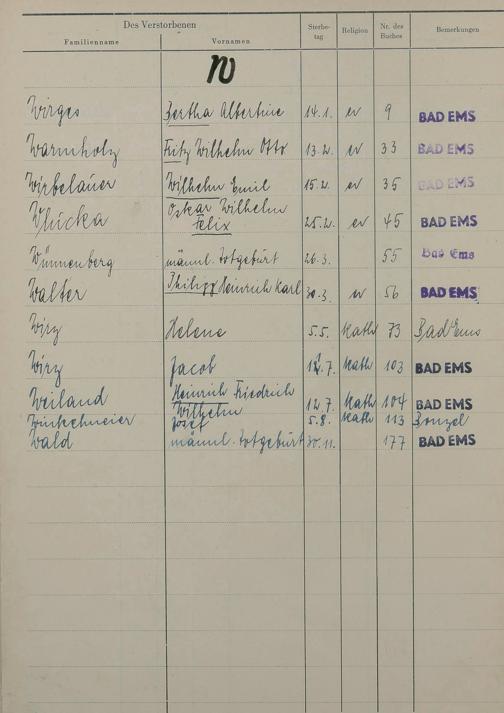 Des Verstorbenen
Familienname Vornamen Sterbe- tag Religion Nr. des Buches Bemerkungen
W
Wirges Bertha Albertine 14.1. ev 9 BAD EMS
Warmholz Fritz Wilhelm Otto 13.2. ev 33 BAD EMS
Wirbelauer Wilhelm Emil 15.2. ev 35 BAD EMS
Oskar Wilhelm
Felix 25.2. ev 45 BAD EMS
Wünnenberg männl. Totgeburt 26.3. 55 Bad Ems
Walter Philipp Heinrich Karl 30.3. ev 56 BAD EMS
Wirz Helene 5.5. kath 73 Bad Ems
Wirz Jacob 12.7. kath 103 BAD EMS
Heinrich Friedrich
Weiland Wilhelm 12.7. kath 104 BAD EMS
Josef 5.8. kath 113
Wald männl. Totgeburt 30.11. 177 BAD EMS